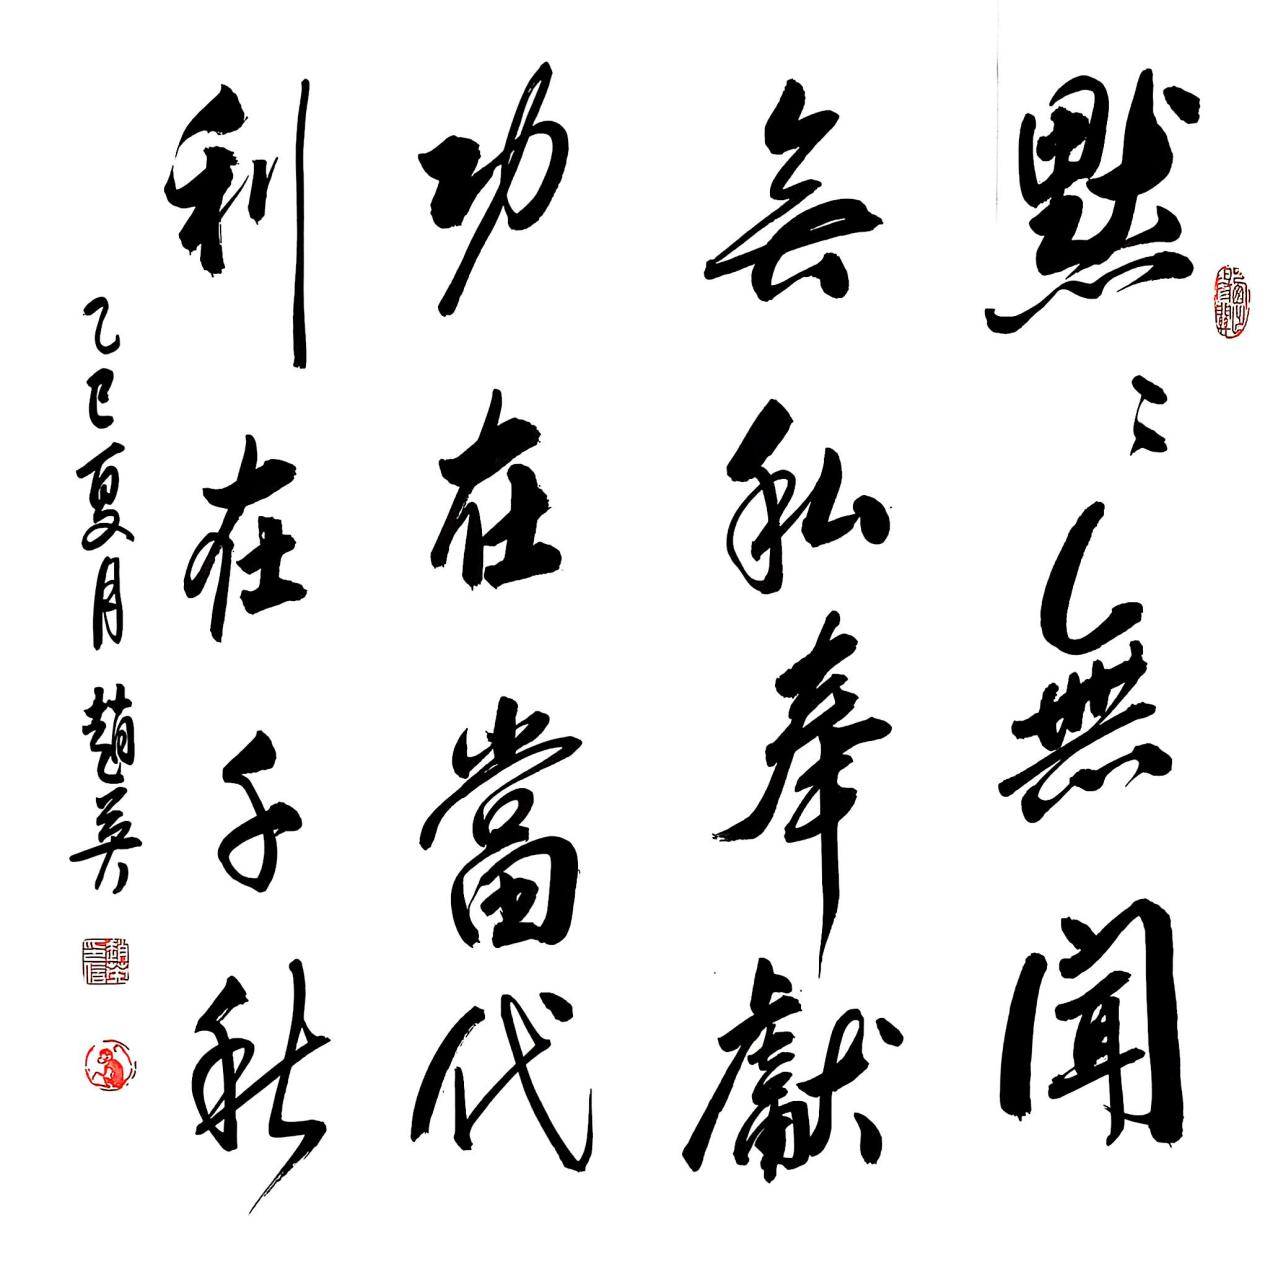 默〻無聞
無私奉獻
功在當代
利在千秋
乙巳夏月趙英